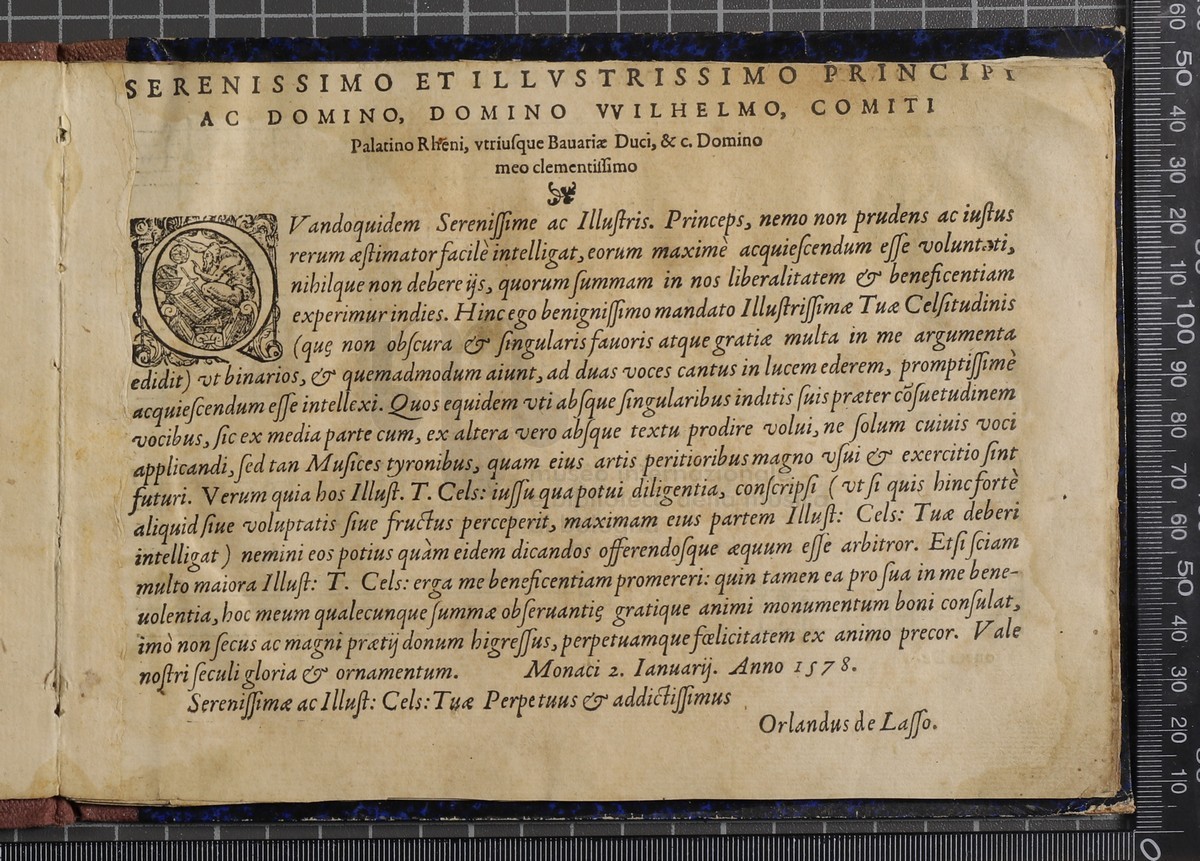 SERENISSIMO ET ILLVSTRISSIMO PRINCIPI
AC DOMINO, DOMINO VVILHELMO, COMITI
Palatino Rheni, vtriuſque Bauariæ Duci, & c. Domino
meo clementiſſimo
QVandoquidem Sereniſſime ac Illuſtris. Princeps, nemo non prudens ac iuſtus
rerum æſtimator facilè intelligat, eorum maximè acquieſcendum eſſe voluntati,
nihilque non debere ijs, quorum ſummam in nos liberalitatem & beneficentiam
experimur indies. Hinc ego benigniſſimo mandato Illuſtriſſimæ Tuæ Celſitudinis
(quę non obſcura & ſingularis fauoris atque gratiæ multa in me argumenta
edidit) vt binarios, & quemadmodum aiunt, ad duas voces cantus in lucem ederem, promptiſſimè
acquieſcendum eſſe intellexi. Quos equidem vti abſque ſingularibus inditis ſuis præter cõſuetudinem
vocibus, ſic ex media parte cum, ex altera vero abſque textu prodire volui, ne ſolum cuiuis voci
applicandi, ſed tan Muſices tyronibus, quam eius artis peritioribus magno vſui & exercitio ſint
futuri. Verum quia hos Illuſt. T. Cels: iuſſu qua potui diligentia, conſcripſi (vt ſi quis hinc fortè
aliquid ſiue voluptatis ſiue fructus perceperit, maximam eius partem Illuſt: Cels: Tuæ deberi
intelligat) nemini eos potius quàm eidem dicandos offerendoſque æquum eſſe arbitror. Etſi ſciam
multo maiora Illuſt: T. Cels: erga me beneficentiam promereri: quin tamen ea pro ſua in me bene-
uolentia, hoc meum qualecunque ſummæ obſeruantię gratique animi monumentum boni conſulat,
imò non ſecus ac magni prætij donum higreſſus, perpetuamque fœlicitatem ex animo precor. Vale
noſtri ſeculi gloria & ornamentum. Monaci 2. Ianuarij. Anno 1578.
Sereniſſimæ ac Illuſt: Cels: Tuæ Perpetuus & addictiſſimus
Orlandus de Laſſo.
60
50
40
30
20
10
100
90
80
70
60
50
40
30
20
10
0